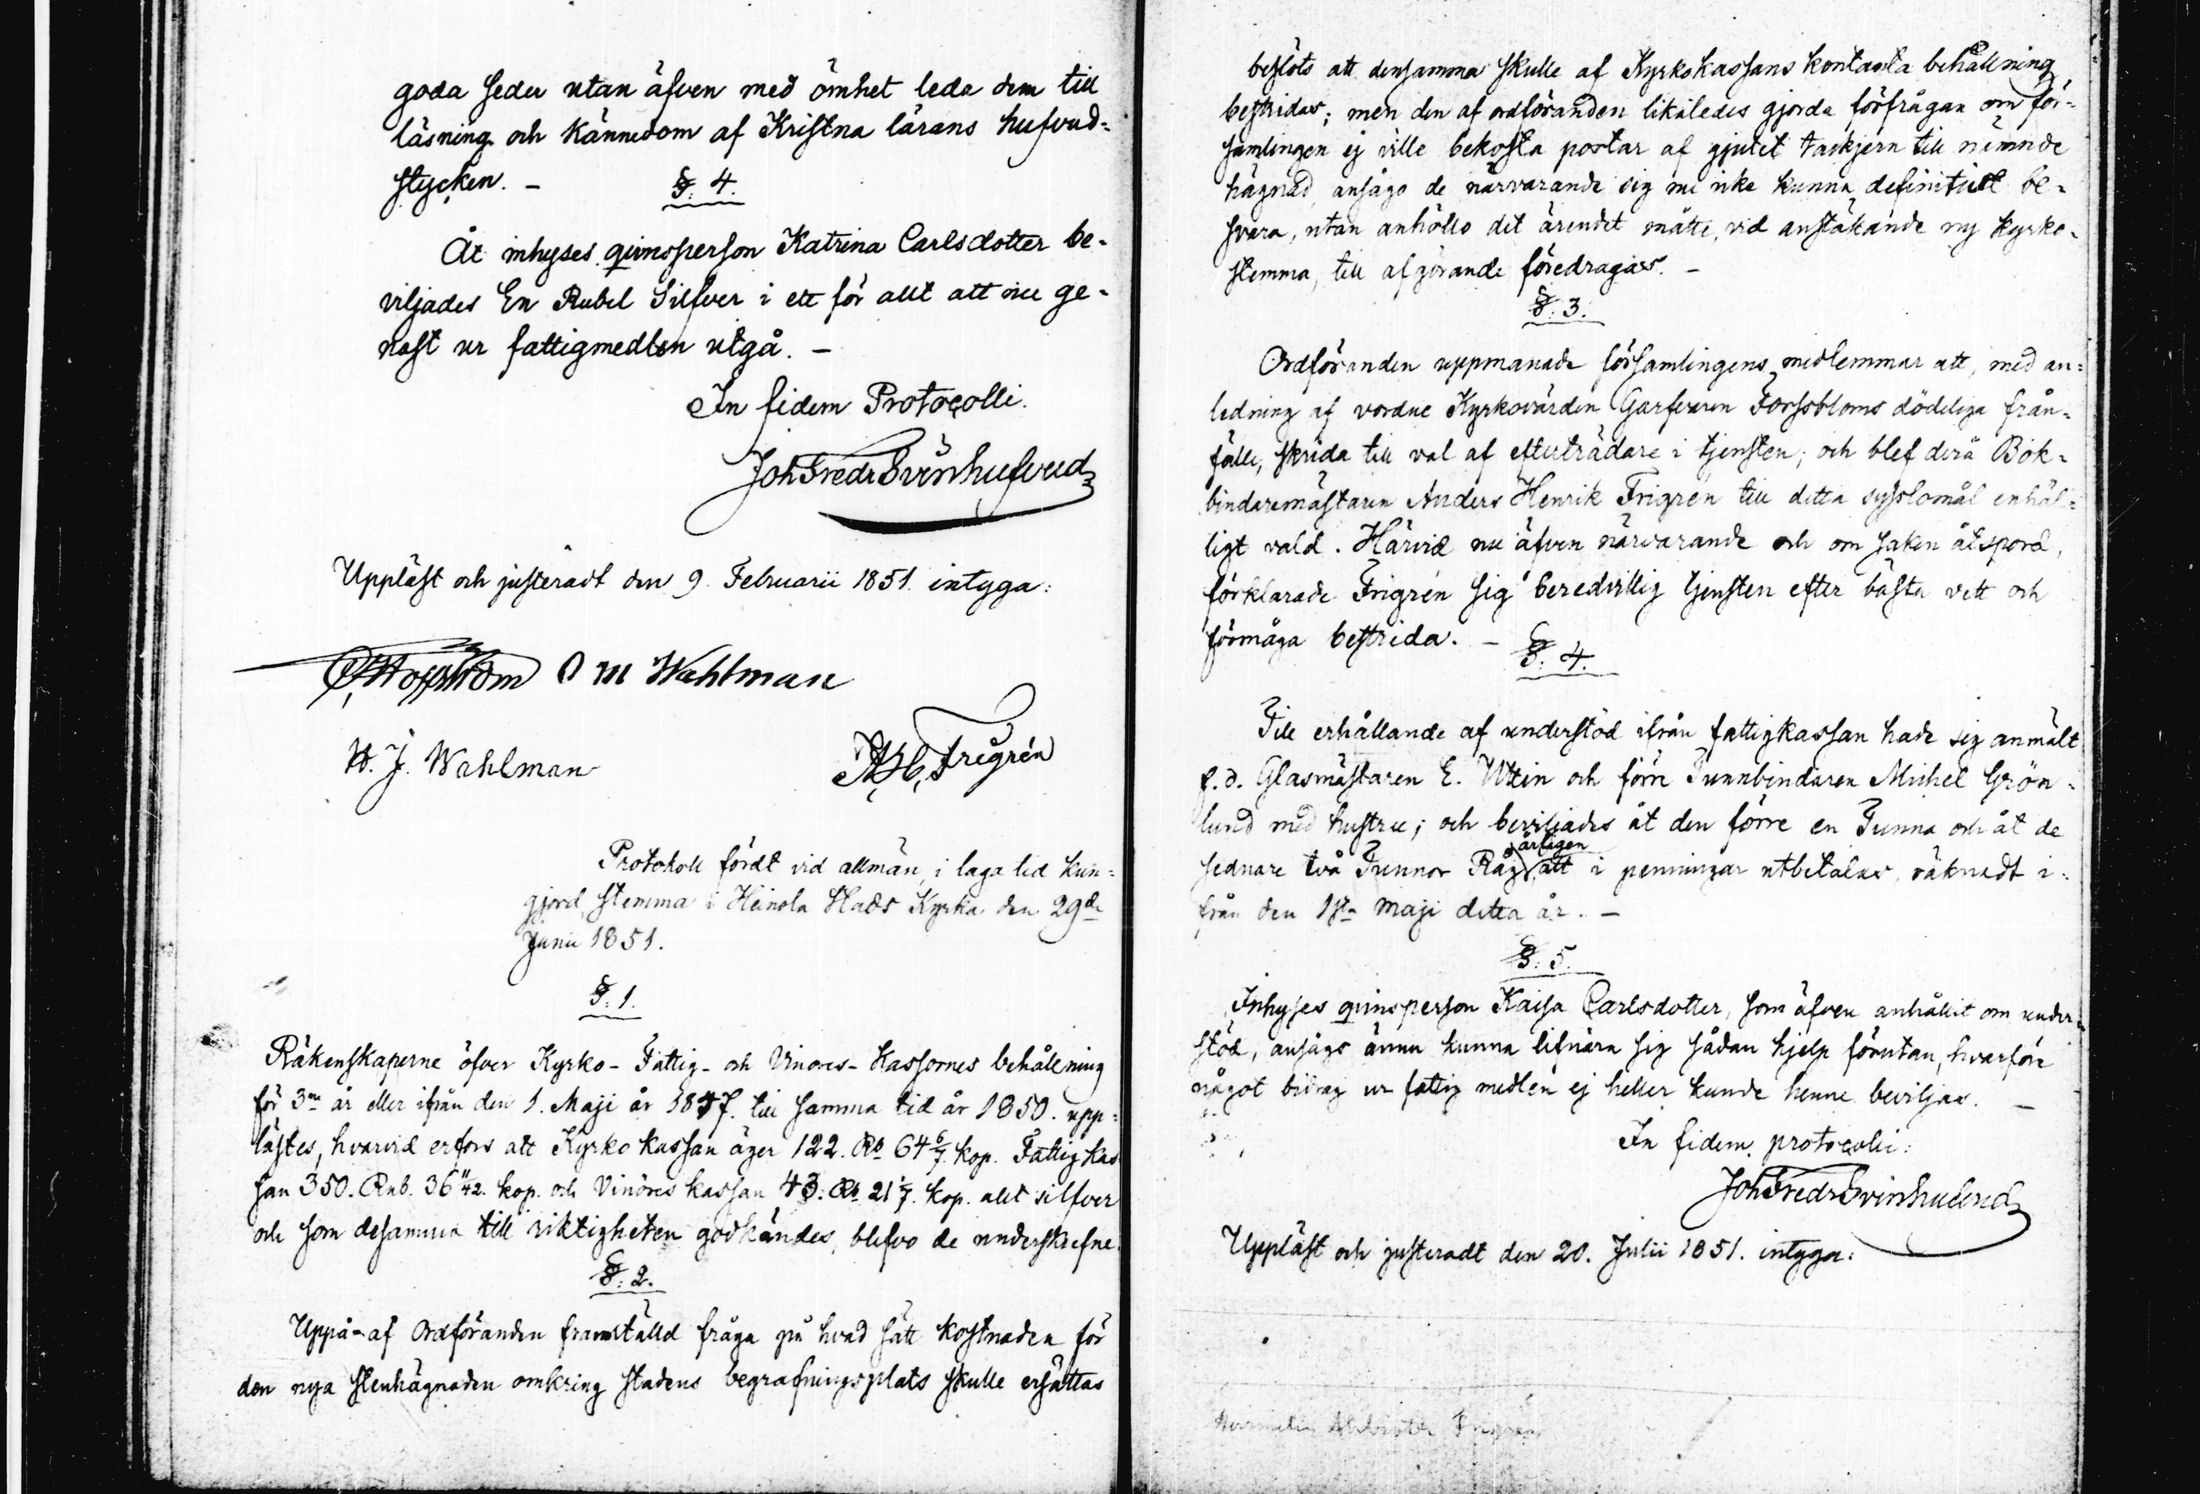 goda seder utan äfven med ömhet leda dem till
läsning och kännedom af Kristna lärans hufvud=
stycken. –
§. 4.
Åt inhyses qvinsperson Katrina Carlsdotter be-
viljades En Rubel Silfver i ett för allt att nu ge-
nast ur fattigmedlen utgå. –
In fidem Protocolli.
Joh Fredr Svinhufvud
Uppläst och justeradt den 9. Februarii 1851. intyga:
O M Wahlman
W. J. Wahlman
A. H. Frigrén
Protokoll fördt vid allmän, i laga tid kun=
gjord, stemma i Heinola Stads Kyrka den 29de
Junii 1851.
§. 1.
Räkenskaperne öfver Kyrko- Fattig- och Vinöres- Kassornes behållning
för 3ne år eller ifrån den 1. Maji år 1847. till samma tid år 1850. upp=
lästes, hvarvid erfors att Kyrko kassan äger 122. Rb 64 6/7. kop. Fattig kas
san 350. Rub. 36 11/42. kop. och Vinöres kassan 43. Rb. 21 1/7. kop. allt silfver
och som desamma till riktigheten godkändes, blefvo de underskrefne.
§. 2.
Uppå af Ordföranden framställd fråga på hvad sätt kostnaden för
den nya stenhägnaden omkring stadens begrafningsplats skulle ersättas
beslöts att densamma skulle af Kyrkokassans kontanta behållning
bestridas; men den af ordföranden likaledes gjorda förfrågan om för-
samlingen ej ville bekosta portar af gjutet tackjern till nämnde
hägnad, ansågo de närvarande sig nu icke kunna definitivt be-
svara, utan anhöllo det ärendet måtte, vid anstakande ny kyrko-
stemma, till afgörande föredragas. –
§. 3.
Ordföranden uppmanade församlingens medlemmar att, med an=
ledning af vordne Kyrkovärden Garfvaren Forssbloms dödeliga från=
fälle, skrida till val af efterträdare i tjensten; och blef dervid Bok=
bindaremästaren Anders Henrik Frigrén till detta sysslomål enhäl=
ligt vald. Härvid nu äfven närvarande och om saken åtspord,
förklarade Frigrén sig beredvillig tjensten efter bästa vett och
förmåga bestrida. –
§. 4.
Till erhållande af understöd ifrån fattigkassan hade sig anmält
f. d. Glasmästaren E. Uttin och förre Tunnbindaren Michel Grön-
lund med hustru; och beviljades åt den förre en Tunna och åt de
sednare två Tunnor Råg årligen att i penningar utbetalas, räknadt i-
från den 1sta Maji detta år. –
§. 5.
Inhyses qvinsperson Kaisa Carlsdotter, som äfven anhållit om under-
stöd, ansågs ännu kunna lifnära sig sådan hjelp förutan, hvarföre
något bidrag ur fattig medlen ej heller kunde henne beviljas. –
In fidem protocolli:
Joh Fredr Svinhufvud
Uppläst och justeradt den 20. Julii 1851. intyga: